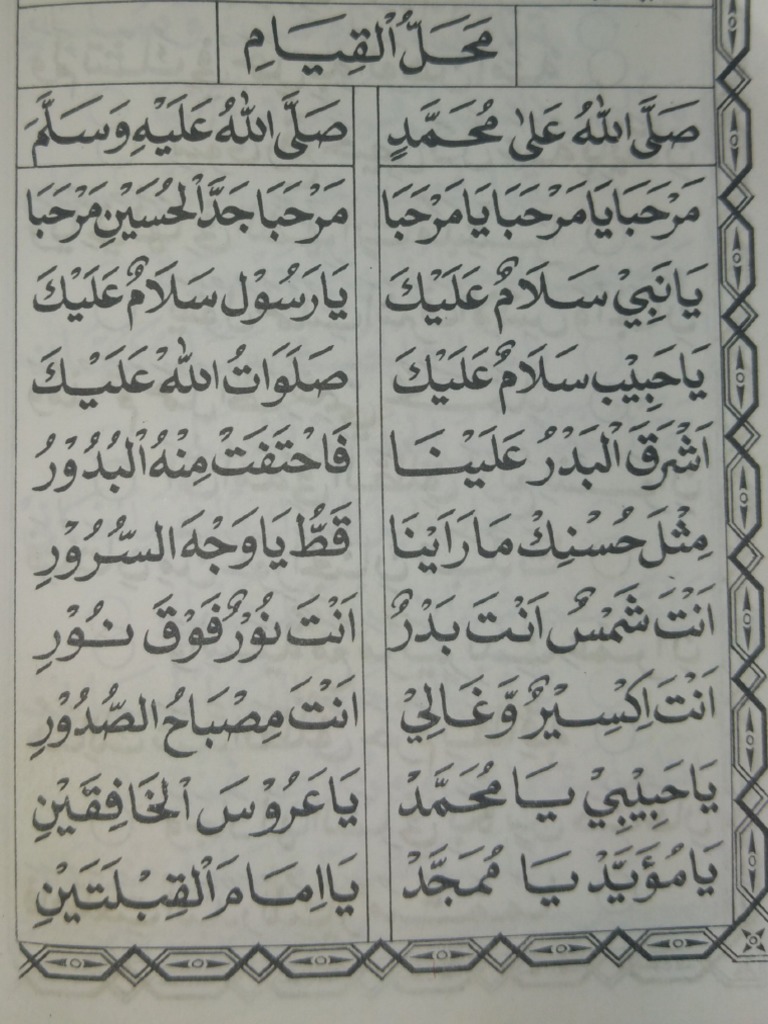 مَحَلُّ ٱلْقِيَامِ
صَلَّى اللهُ عَلٰى مُحَمَّدٍ صَلَّى اللهُ عَلَيْهِ وَسَلَّمَ
مَرْحَبَا يَا مَرْحَبَا يَا مَرْحَبَا مَرْحَبَا جَدَّ ٱلْحُسَيْنِ مَرْحَبَا
يَا نَبِيْ سَلَامٌ عَلَيْكَ يَا رَسُوْل سَلَامٌ عَلَيْكَ
يَا حَبِيْب سَلَامٌ عَلَيْكَ صَلَوَاتُ اللهْ عَلَيْكَ
اَشْرَقَ ٱلْبَدْرُ عَلَيْنَا فَاحْتَفَتْ مِنْهُ ٱلْبُدُوْرُ
مِثْلَ حُسْنِكْ مَا رَاَيْنَا قَطُّ يَا وَجْهَ السُّرُوْرِ
اَنْتَ شَمْسٌ اَنْتَ بَدْرٌ اَنْتَ نُوْرٌ فَوْقَ نُوْرِ
اَنْتَ اِكْسِيْرٌ وَّغَالِيْ اَنْتَ مِصْبَاحُ الصُّدُوْرِ
يَا حَبِيْبِيْ يَا مُحَمَّدْ يَا عَرُوْسَ ٱلْخَافِقَيْنِ
يَا مُؤَيَّدْ يَا مُمَجَّدْ يَا اِمَامَ ٱلْقِبْلَتَيْنِ